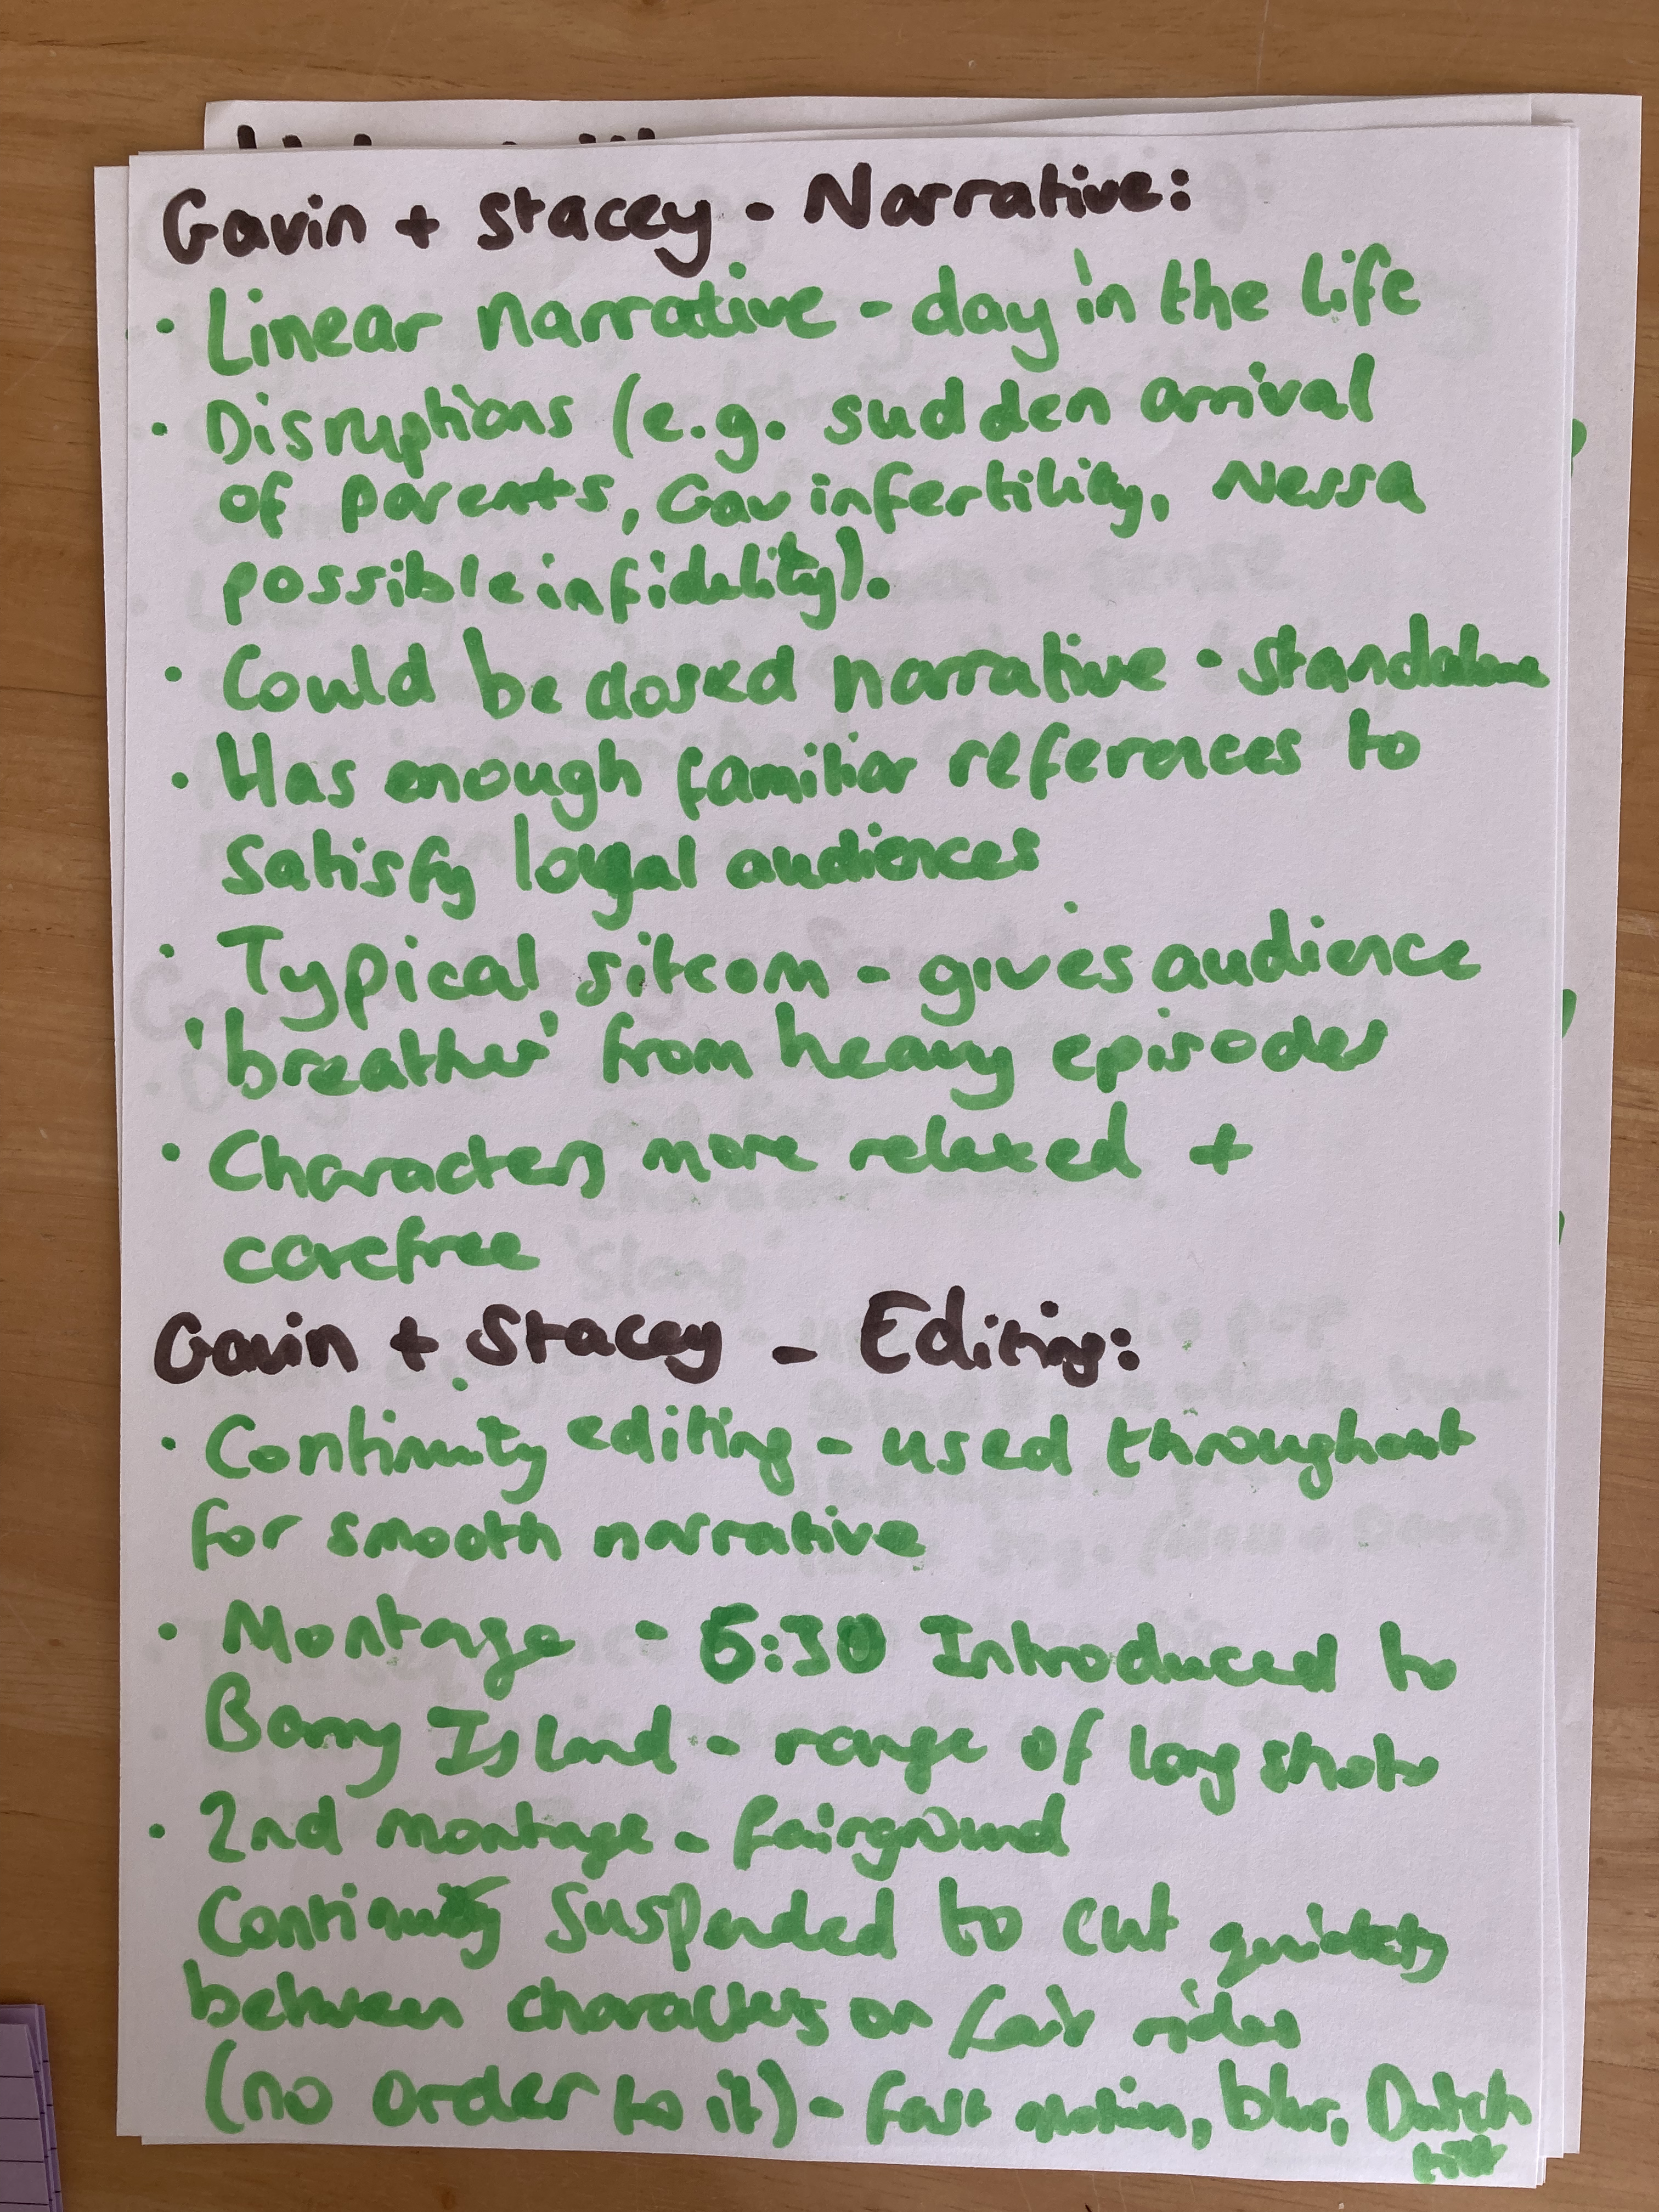 Gavin + Stacey - Narrative:
• Linear narrative - day in the life
• Disruptions (e.g. sudden arrival
of parents, Gav infertility, Nessa
possible infidelity).
• Could be closed narrative - standalone
• Has enough familiar references to
satisfy loyal audiences
• Typical sitcom - gives audience
'breather' from heavy episodes
• Characters more relaxed +
carefree
Gavin + Stacey - Editing:
• Continuity editing - used throughout
for smooth narrative
• Montage - 6:30 Introduced to
Barry Island - range of long shots
• 2nd montage - fairground
Continuity suspended to cut quickly
between characters on fair rides
(no order to it) - fast motion, blur, Dutch
tilt